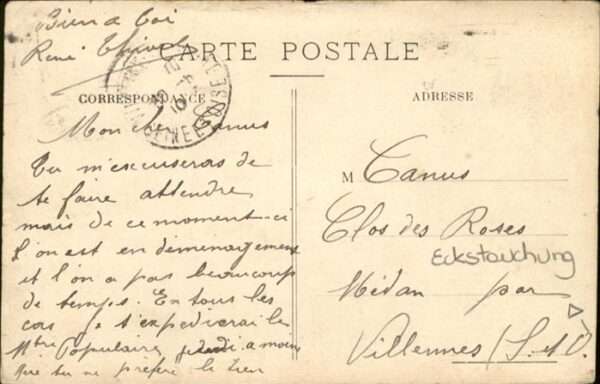 Bien a toi
René
CARTE POSTALE
CORRESPONDANCE
ADRESSE
Mon cher Canus
Tu m'excuseras de
te faire attendre
mais de ce moment-ci
l'on est en déménagement
et l'on a pas beaucoup
de temps. En tous les
cas je t'expédierai le
Populaire jeudi a moins
que tu ne préfère le tien
M Canus
Clos des Roses
Eckstauchung
Médan par
Villennes (S. et O.